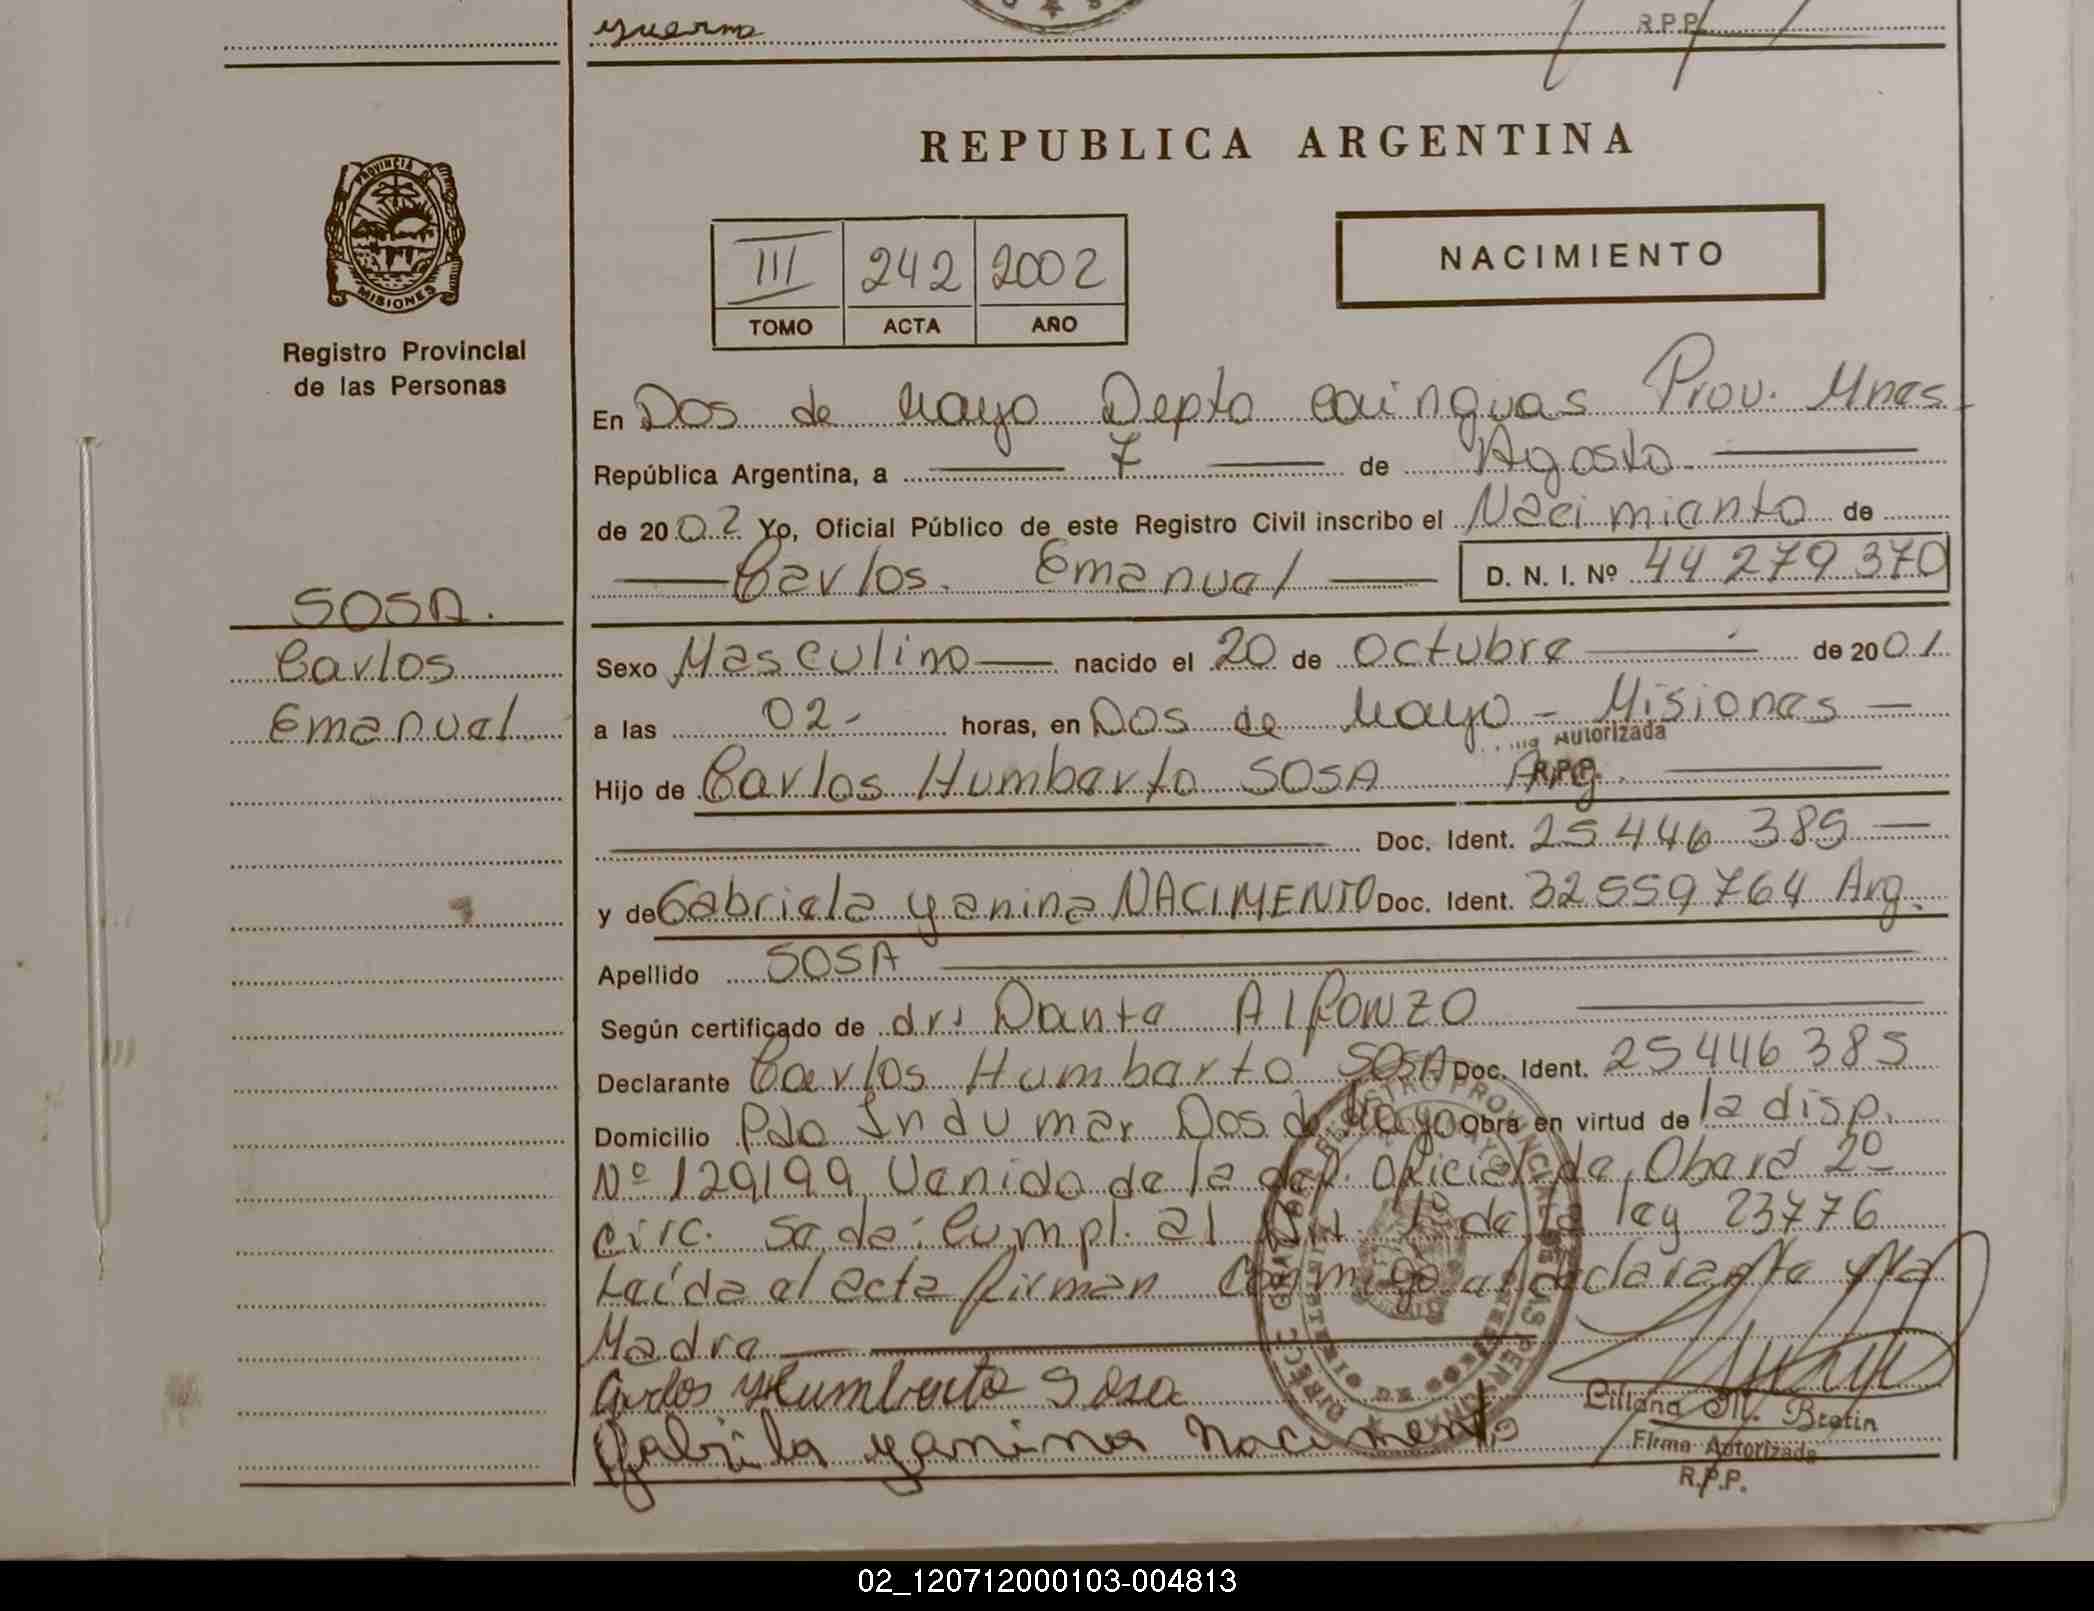 yuerno
R.P.P.
REPUBLICA ARGENTINA
PROVINCIA DE
MISIONES
Registro Provincial
de las Personas
III 242 2002
TOMO ACTA AÑO
NACIMIENTO
En Dos de Mayo Depto Cainguas Prov. Mnes.
República Argentina, a 7 de Agosto
de 2002 Yo, Oficial Público de este Registro Civil inscribo el Nacimiento de
Carlos Emanuel D. N. I. Nº 44 279 370
SOSA.
Carlos
Emanuel
Sexo Masculino nacido el 20 de Octubre de 2001
a las 02- horas, en Dos de Mayo - Misiones
Autorizada
R.P.P.
Hijo de Carlos Humberto SOSA Arg.
Doc. Ident. 25 446 385
y de Gabriela Yanina NACIMENTO Doc. Ident. 32 559 764 Arg.
Apellido SOSA
Según certificado de dr. Dante Alfonzo
Declarante Carlos Humberto SOSA Doc. Ident. 25 446 385
Domicilio Pdo Indumar Dos de Mayo Obra en virtud de la disp.
Nº 129/99 Venido de la dep. Oficial de Oberá 2º
circ. Sede: Cumpl. al Art. 1º de la ley 23776
Leída el acta firman conmigo el declarante y la
Madre
Carlos Humberto Sosa
Gabrila yanina naciment
Liliana M. Brotin
Firma Autorizada
R.P.P.
02_120712000103-004813